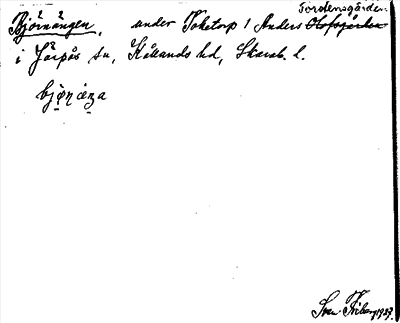 Tordensgården
Björnängen, under Toketorp 1 Anders Olofsgården
i Järpås sn, Kållands hd, Skarab. l.
bjø̣ṇäŋa
Sven Friberg 1927.